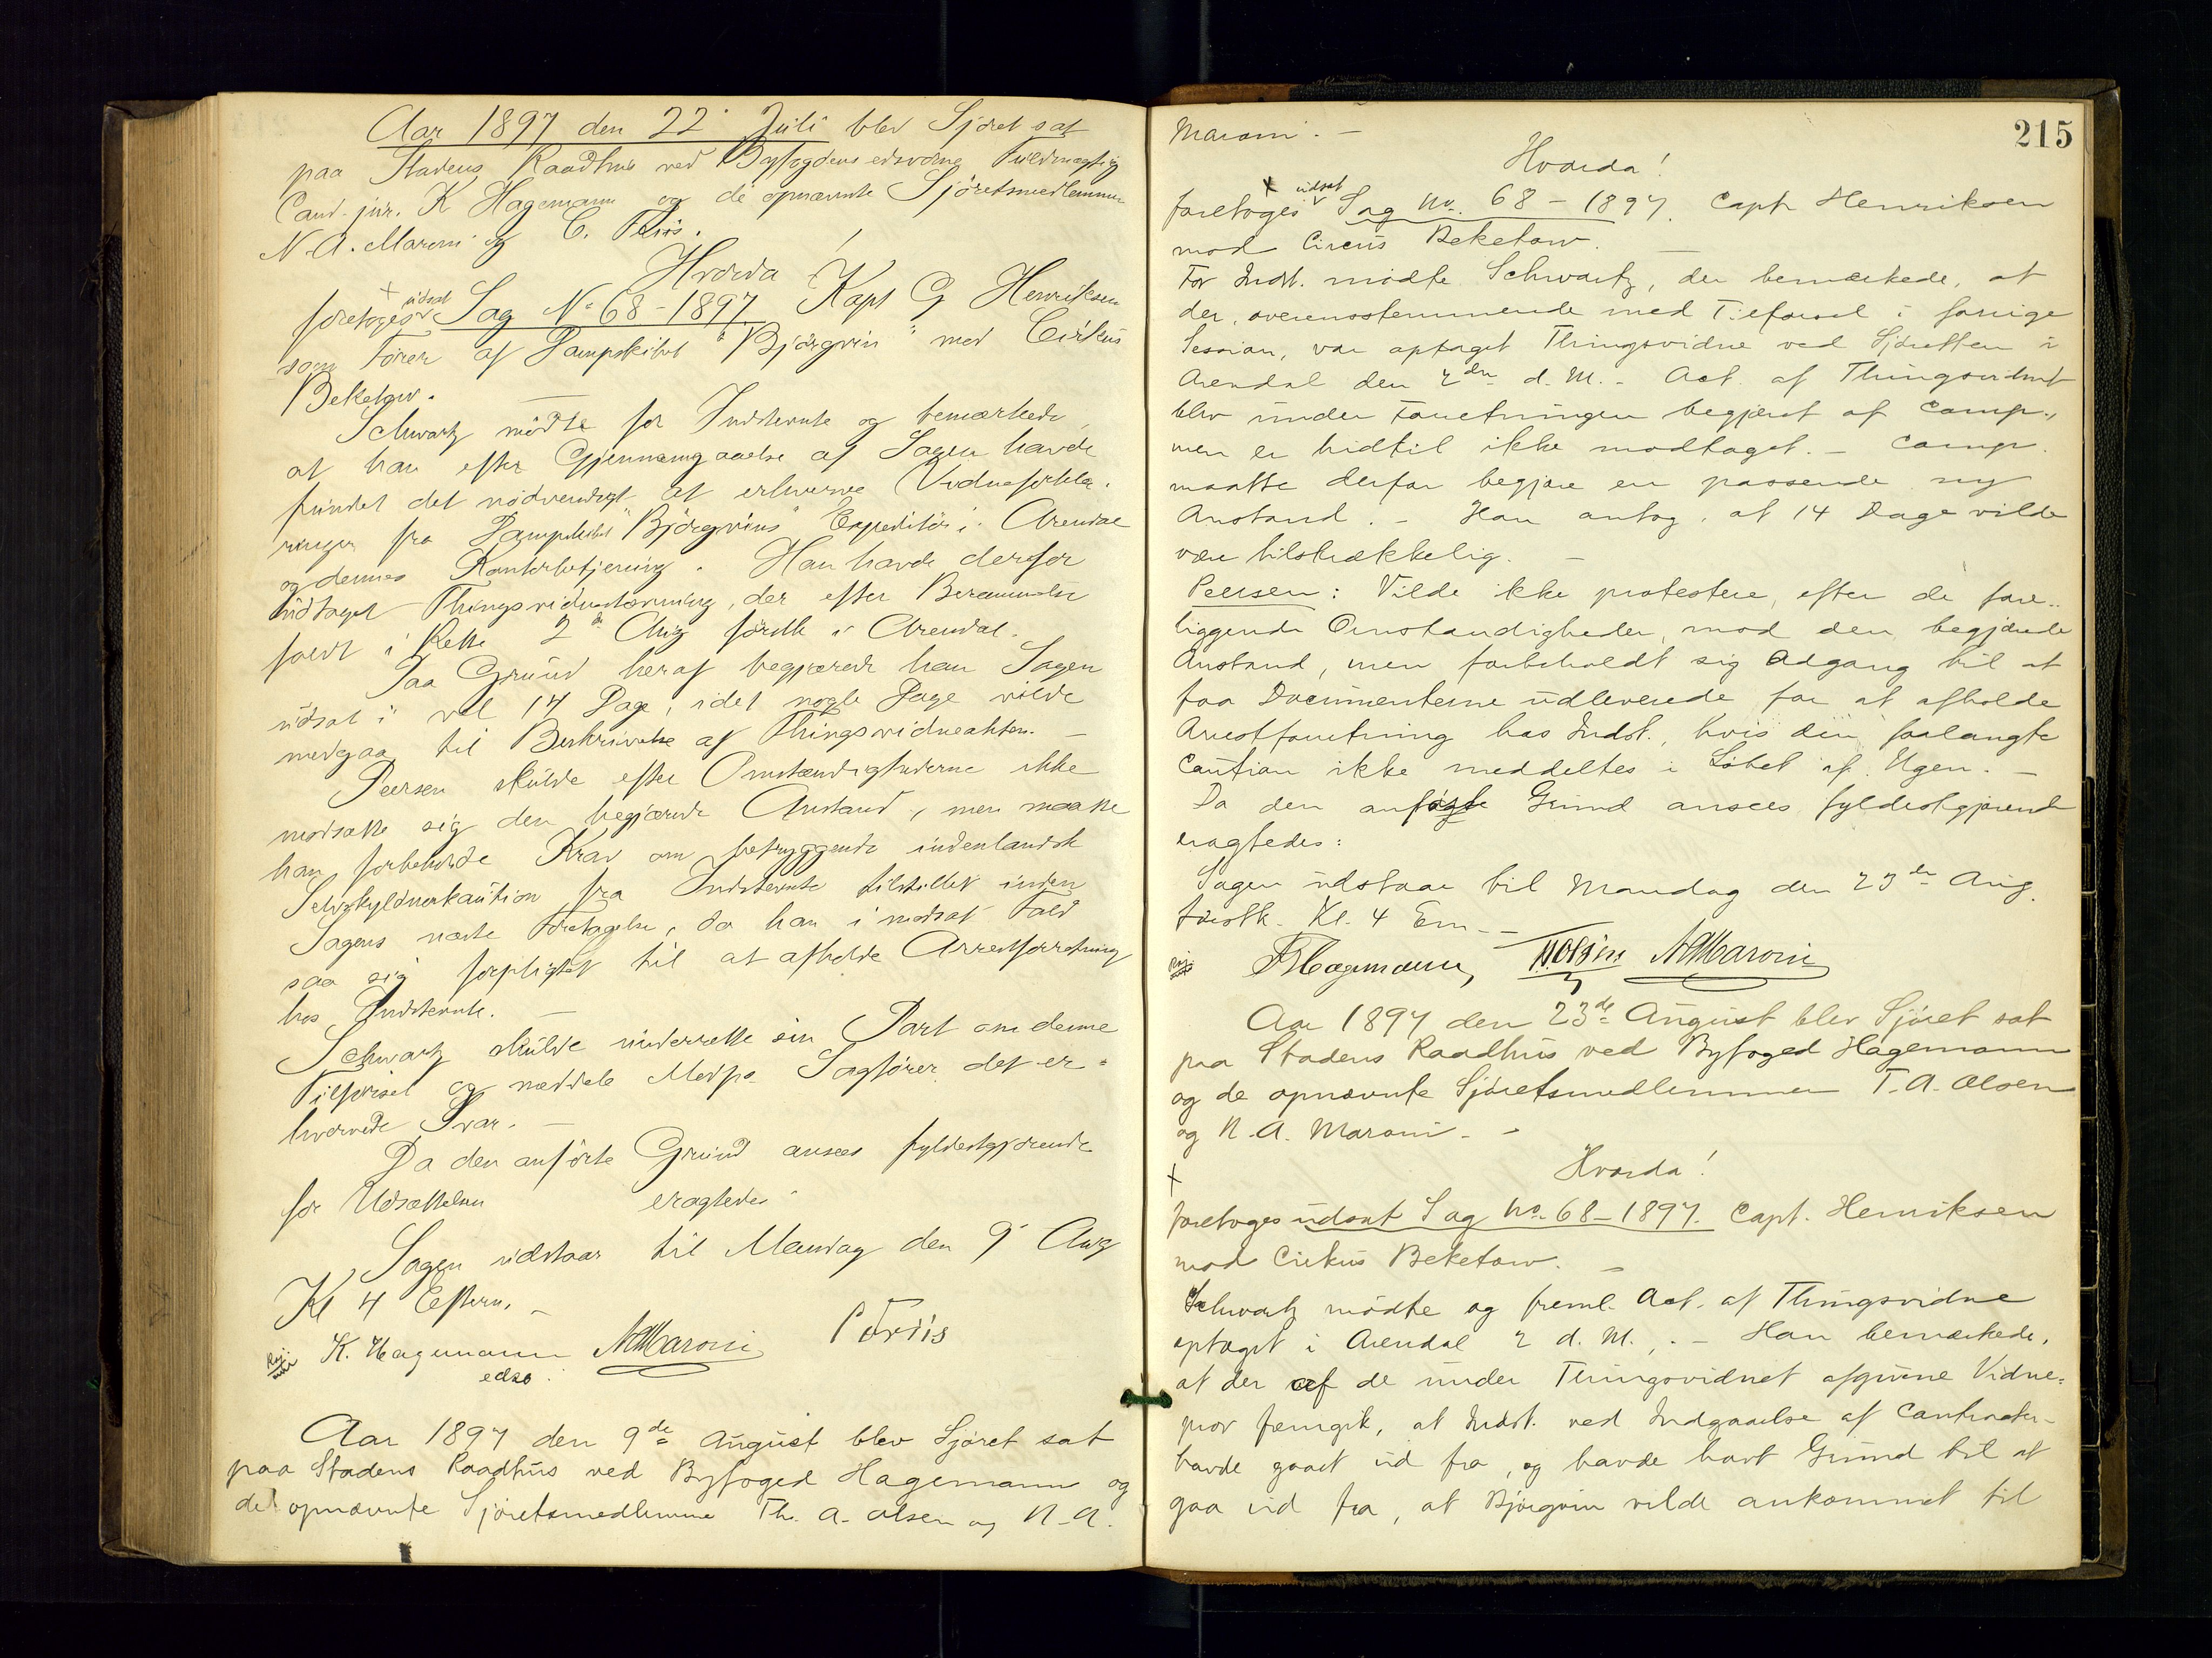 Aar 1897 den 22' Juli blev Sjöret sat
paa Stadens Raadhus ved Byfogdens edsvorne Fuldmægtig
Cand. jur. K Hagemann og de opnævnte Sjöretsmedlemmer
N. A. Maroni og C.
Hvorda!
foretoges udsat Sag No 68-1897 Kapt G Henriksen
som Fører af Dampskibet "Bjørgvin" mod Cirkus
Beketow.
Schwartz mödte for Indstevnte og bemærkede,
at han efter Gjennemgaaelse af Sagen havde
fundet det nödvendigt at erhverve Vidneforkla-
ringer fra Dampskibet "Björgvins" Expeditör i Arendal
og dennes Kontorbetjening. Han havde derfor
udtaget Thingsvidnestævning, der efter Berammelse
faldt i Rette 2' Aug förstk i Arendal.
Paa Grund heraf begjærede han Sagen
udsat i vel 14 Dage, idet nogle Dage vilde
medgaa til Beskrivelse af Thingsvidneakten. -
Peersen skulde efter Omstændighederne ikke
modsætte sig den begjærede Anstand, men maatte
han forbeholde Krav om betryggende indenlandsk
Selvskyldnerkaution fra Indstevnte tilstillet inden
Sagens næste Foretagelse, da han i modsat Fald
saa sig forpligtet til at afholde Arrestforretning
hos Indstevnte. -
Schwartz skulde underrette sin Part om denne
Tilførsel og meddele Modp. Sagfører det er-
hvervede Svar. -
Da den anförte Grund ansees fyldestgjørende
for Udsættelsen eragtedes
Sagen udstaar til Mandag den 9' Aug
Kl 4 Efterm. -
K. Hagemann NAMaroni
edsv.
Aar 1897 den 9de August blev Sjöret sat
paa Stadens Raadhus ved Byfoged Hagemann og
de opnævnte Sjöretsmedlemme Th. A. Olsen og N. A.
215
Maroni. -
Hvorda!
foretoges udsat Sag No. 68 - 1897. Capt Henriksen
mod Circus Beketow. -
For Indst. mödte Schwartz, der bemærkede, at
der, overensstemmende med Tilførsel i forrige
Session, var optaget Thingsvidne ved Sjöretten i
Arendal den 2den d. M. - Act. af Thingsvidnet
blev under Forretningen begjært af Comp.,
men er hidtil ikke modtaget. - Comp.
maatte derfor begjære en passende ny
Anstand. - Han antog, at 14 Dage vilde
være tilstrækkelig. -
Peersen: Vilde ikke protestere, efter de fore-
liggende Omstændigheder, mod den begjærede
Anstand, men forbeholdt sig Adgang til at
faa Documenterne udleverede for at afholde
Arrestforretning hos Indst., hvis den forlangte
Caution ikke meddeltes i Løbet af Ugen. -
Da den anførte Grund ansees fyldestgjørende
eragtedes:
Sagen udstaar til Mandag den 23de Aug.
førstk. Kl. 4 Em. -
Hagemann, NAMaroni
Aar 1897 den 23de August blev Sjöret sat
paa Stadens Raadhus ved Byfoged Hagemann
og de opnævnte Sjöretsmedlemmer T. A. Olsen
og N. A. Maroni. -
Hvorda!
foretoges udsat Sag No. 68-1897. Capt. Henriksen
mod Cirkus Beketow. -
Schwartz mödte og freml. Act. af Thingsvidne
optaget i Arendal 2 d. M., - Han bemærkede,
at der af de under Thingsvidnet afgivne Vidne-
prov fremgik, at Indst. ved Indgaaelse af Contracten
havde gaaet ud fra, og havde havt Grund til at
gaa ud fra, at Bjørgvin vilde ankommet til